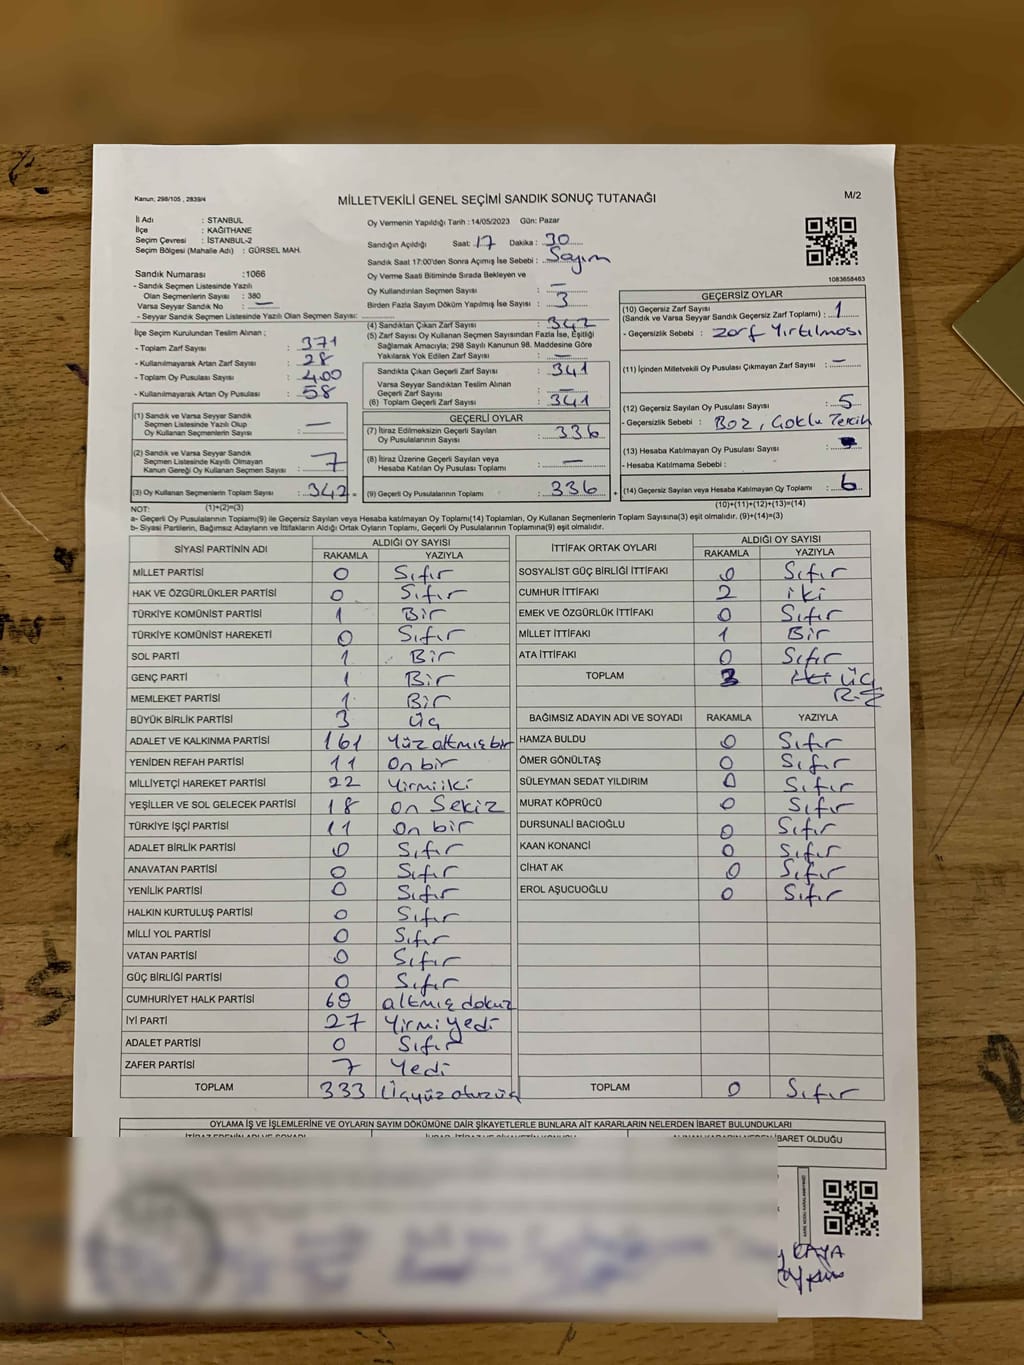 Kanun; 298/105 , 2839/4
MİLLETVEKİLİ GENEL SEÇİMİ SANDIK SONUÇ TUTANAĞI
M/2
İl Adı : STANBUL
İlçe : KAĞITHANE
Seçim Çevresi : İSTANBUL-2
Seçim Bölgesi (Mahalle Adı) : GÜRSEL MAH.
Sandık Numarası :1066
- Sandık Seçmen Listesinde Yazılı
Olan Seçmenlerin Sayısı : 380
Varsa Seyyar Sandık No : —
- Seyyar Sandık Seçmen Listesinde Yazılı Olan Seçmen Sayısı:
İlçe Seçim Kurulundan Teslim Alınan ;
- Toplam Zarf Sayısı : 371
- Kullanılmayarak Artan Zarf Sayısı : 28
- Toplam Oy Pusulası Sayısı : 400
- Kullanılmayarak Artan Oy Pusulası : 58
(1) Sandık ve Varsa Seyyar Sandık
Seçmen Listesinde Yazılı Olup
Oy Kullanan Seçmenlerin Sayısı : —
(2) Sandık ve Varsa Seyyar Sandık
Seçmen Listesinde Kayıtlı Olmayan
Kanun Gereği Oy Kullanan Seçmen Sayısı : 7
(3) Oy Kullanan Seçmenlerin Toplam Sayısı : 342 =
(1)+(2)=(3)
Oy Vermenin Yapıldığı Tarih :14/05/2023 Gün: Pazar
Sandığın Açıldığı Saat: 17 Dakika : 30
Sandık Saat 17:00'den Sonra Açılmış İse Sebebi : Sayım
Oy Verme Saati Bitiminde Sırada Bekleyen ve
Oy Kullandırılan Seçmen Sayısı : —
Birden Fazla Sayım Döküm Yapılmış İse Sayısı : 3
(4) Sandıktan Çıkan Zarf Sayısı : 342
(5) Zarf Sayısı Oy Kullanan Seçmen Sayısından Fazla İse, Eşitliği
Sağlamak Amacıyla; 298 Sayılı Kanunun 98. Maddesine Göre
Yakılarak Yok Edilen Zarf Sayısı : —
Sandıkta Çıkan Geçerli Zarf Sayısı : 341
Varsa Seyyar Sandıktan Teslim Alınan
Geçerli Zarf Sayısı : —
(6) Toplam Geçerli Zarf Sayısı : 341
GEÇERLİ OYLAR
(7) İtiraz Edilmeksizin Geçerli Sayılan
Oy Pusulalarının Sayısı : 336
(8) İtiraz Üzerine Geçerli Sayılan veya
Hesaba Katılan Oy Pusulası Toplamı : —
(9) Geçerli Oy Pusulalarının Toplamı : 336 +
1083658463
GEÇERSİZ OYLAR
(10) Geçersiz Zarf Sayısı
(Sandık ve Varsa Seyyar Sandık Geçersiz Zarf Toplamı) : 1
- Geçersizlik Sebebi : Zarf Yırtılması
(11) İçinden Milletvekili Oy Pusulası Çıkmayan Zarf Sayısı : —
(12) Geçersiz Sayılan Oy Pusulası Sayısı : 5
- Geçersizlik Sebebi : Boz, Çoklu Tercih
(13) Hesaba Katılmayan Oy Pusulası Sayısı :
- Hesaba Katılmama Sebebi :
(14) Geçersiz Sayılan veya Hesaba Katılmayan Oy Toplamı : 6
(10)+(11)+(12)+(13)=(14)
NOT:
a- Geçerli Oy Pusulalarının Toplamı(9) ile Geçersiz Sayılan veya Hesaba katılmayan Oy Toplamı(14) Toplamları, Oy Kullanan Seçmenlerin Toplam Sayısına(3) eşit olmalıdır. (9)+(14)=(3)
b- Siyasi Partilerin, Bağımsız Adayların ve İttifakların Aldığı Ortak Oyların Toplamı, Geçerli Oy Pusulalarının Toplamına(9) eşit olmalıdır.
SİYASİ PARTİNİN ADI ALDIĞI OY SAYISI
RAKAMLA YAZIYLA
MİLLET PARTİSİ 0 Sıfır
HAK VE ÖZGÜRLÜKLER PARTİSİ 0 Sıfır
TÜRKİYE KOMÜNİST PARTİSİ 1 Bir
TÜRKİYE KOMÜNİST HAREKETİ 0 Sıfır
SOL PARTİ 1 Bir
GENÇ PARTİ 1 Bir
MEMLEKET PARTİSİ 1 Bir
BÜYÜK BİRLİK PARTİSİ 3 üç
ADALET VE KALKINMA PARTİSİ 161 Yüz altmış bir
YENİDEN REFAH PARTİSİ 11 On bir
MİLLİYETÇİ HAREKET PARTİSİ 22 Yirmi iki
YEŞİLLER VE SOL GELECEK PARTİSİ 18 on Sekiz
TÜRKİYE İŞÇİ PARTİSİ 11 On bir
ADALET BİRLİK PARTİSİ 0 Sıfır
ANAVATAN PARTİSİ 0 Sıfır
YENİLİK PARTİSİ 0 Sıfır
HALKIN KURTULUŞ PARTİSİ 0 Sıfır
MİLLİ YOL PARTİSİ 0 Sıfır
VATAN PARTİSİ 0 Sıfır
GÜÇ BİRLİĞİ PARTİSİ 0 Sıfır
CUMHURİYET HALK PARTİSİ 69 altmış dokuz
İYİ PARTİ 27 Yirmi yedi
ADALET PARTİSİ 0 Sıfır
ZAFER PARTİSİ 7 Yedi
TOPLAM 333 Üçyüz otuzüç
İTTİFAK ORTAK OYLARI ALDIĞI OY SAYISI
RAKAMLA YAZIYLA
SOSYALIST GÜÇ BİRLİĞİ İTTİFAKI 0 Sıfır
CUMHUR İTTİFAKI 2 iki
EMEK VE ÖZGÜRLÜK İTTİFAKI 0 Sıfır
MİLLET İTTİFAKI 1 Bir
ATA İTTİFAKI 0 Sıfır
TOPLAM 3 iki üç
BAĞIMSIZ ADAYIN ADI VE SOYADI RAKAMLA YAZIYLA
HAMZA BULDU 0 Sıfır
ÖMER GÖNÜLTAŞ 0 Sıfır
SÜLEYMAN SEDAT YILDIRIM 0 Sıfır
MURAT KÖPRÜCÜ 0 Sıfır
DURSUNALİ BACIOĞLU 0 Sıfır
KAAN KONANCİ 0 Sıfır
CİHAT AK 0 Sıfır
EROL AŞUCUOĞLU 0 Sıfır
TOPLAM 0 Sıfır
OYLAMA İŞ VE İŞLEMLERİNE VE OYLARIN SAYIM DÖKÜMÜNE DAİR ŞİKAYETLERLE BUNLARA AİT KARARLARIN NELERDEN İBARET BULUNDUKLARI
İBARET OLDUĞU
KAYA